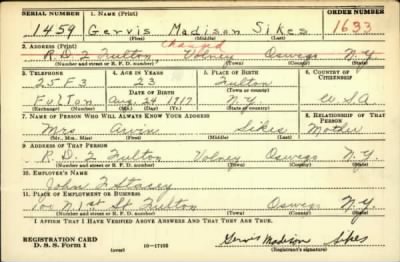 SERIAL NUMBER 1. NAME (Print) ORDER NUMBER
1459 Gervis Madison Sikes 1633
(First) (Middle) (Last)
2. ADDRESS (Print) Changed
R.D. 2 Fulton, Volney Oswego N.Y.
(Number and street or R. F. D. number) (Town) (County) (State)
3. TELEPHONE 4. AGE IN YEARS 5. PLACE OF BIRTH 6. COUNTRY OF CITIZENSHIP
25-F3 23 Fulton
DATE OF BIRTH (Town or county)
Fulton Aug. 24 1917 N.Y. U.S.A
(Exchange) (Number) (Mo.) (Day) (Yr.) (State or country)
7. NAME OF PERSON WHO WILL ALWAYS KNOW YOUR ADDRESS 8. RELATIONSHIP OF THAT PERSON
Mrs Arvin Sikes Mother
(Mr., Mrs., Miss) (First) (Middle) (Last)
9. ADDRESS OF THAT PERSON
R.D. 2 Fulton Volney Oswego N.Y.
(Number and street or R. F. D. number) (Town) (County) (State)
10. EMPLOYER'S NAME
John
11. PLACE OF EMPLOYMENT OR BUSINESS
N 1st St Fulton Oswego N.Y.
(Number and street or R. F. D. number) (Town) (County) (State)
I AFFIRM THAT I HAVE VERIFIED ABOVE ANSWERS AND THAT THEY ARE TRUE.
REGISTRATION CARD
D. S. S. Form 1 (over) 16—17105 Gervis Madison Sikes
(Registrant's signature)